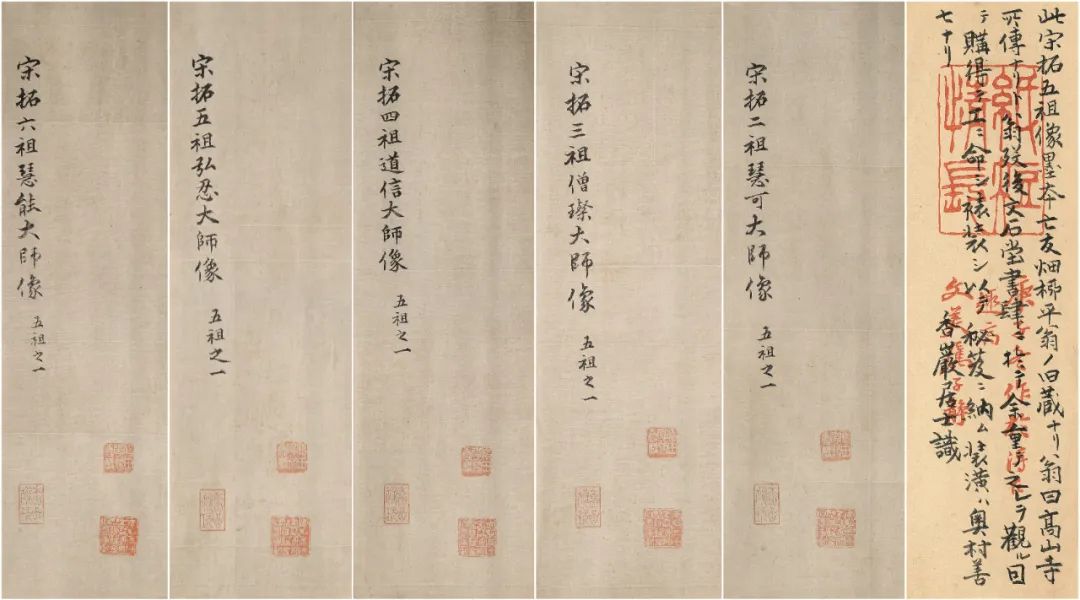 此宋拓五祖像墨本亡友畑柳平翁ノ旧蔵ナリ翁曰高山寺
所傳ナリト翁歿後文石堂書肆ニ於テ余重テ之ヲ觀ル因
テ購得テ工ニ命シ裱装シ以テ秘笈ニ納ム装潢ハ奥村善
七ナリ 香巖居士識
紙短情長
宋拓二祖慧可大師像 五祖之一
宋拓三祖僧璨大師像 五祖之一
宋拓四祖道信大師像 五祖之一
宋拓五祖弘忍大師像 五祖之一
宋拓六祖慧能大師像 五祖之一